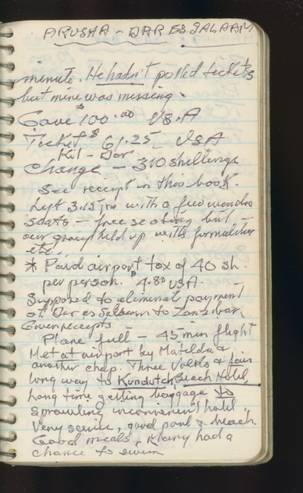 ARUSHA - DAR ES SALAAM
minute. He hadn't posted tickets
but mine was missing.
Gave $100.00 US.A
Ticket $61.25 USA
Kil - Dar
Change - 310 shillings
See receipt in this book
Left 3.15 pm with a few window
seats - free seating but
our group held up with formalities
etc.
* Paid airport tax of 40 sh.
per person. $4.80 USA
Supposed to eliminate payment
at Dar es Salaam to Zanzibar.
Given receipts -
Plane full - 45 min flight
Met at airport by Matilda &
another chap. Three Volvo &
long way to Kunduchi Beach Hotel
Long time getting baggage to
sprawling inconvenient hotel.
Very scenic, good pool & beach
Good meals, Many had a
chance to swim